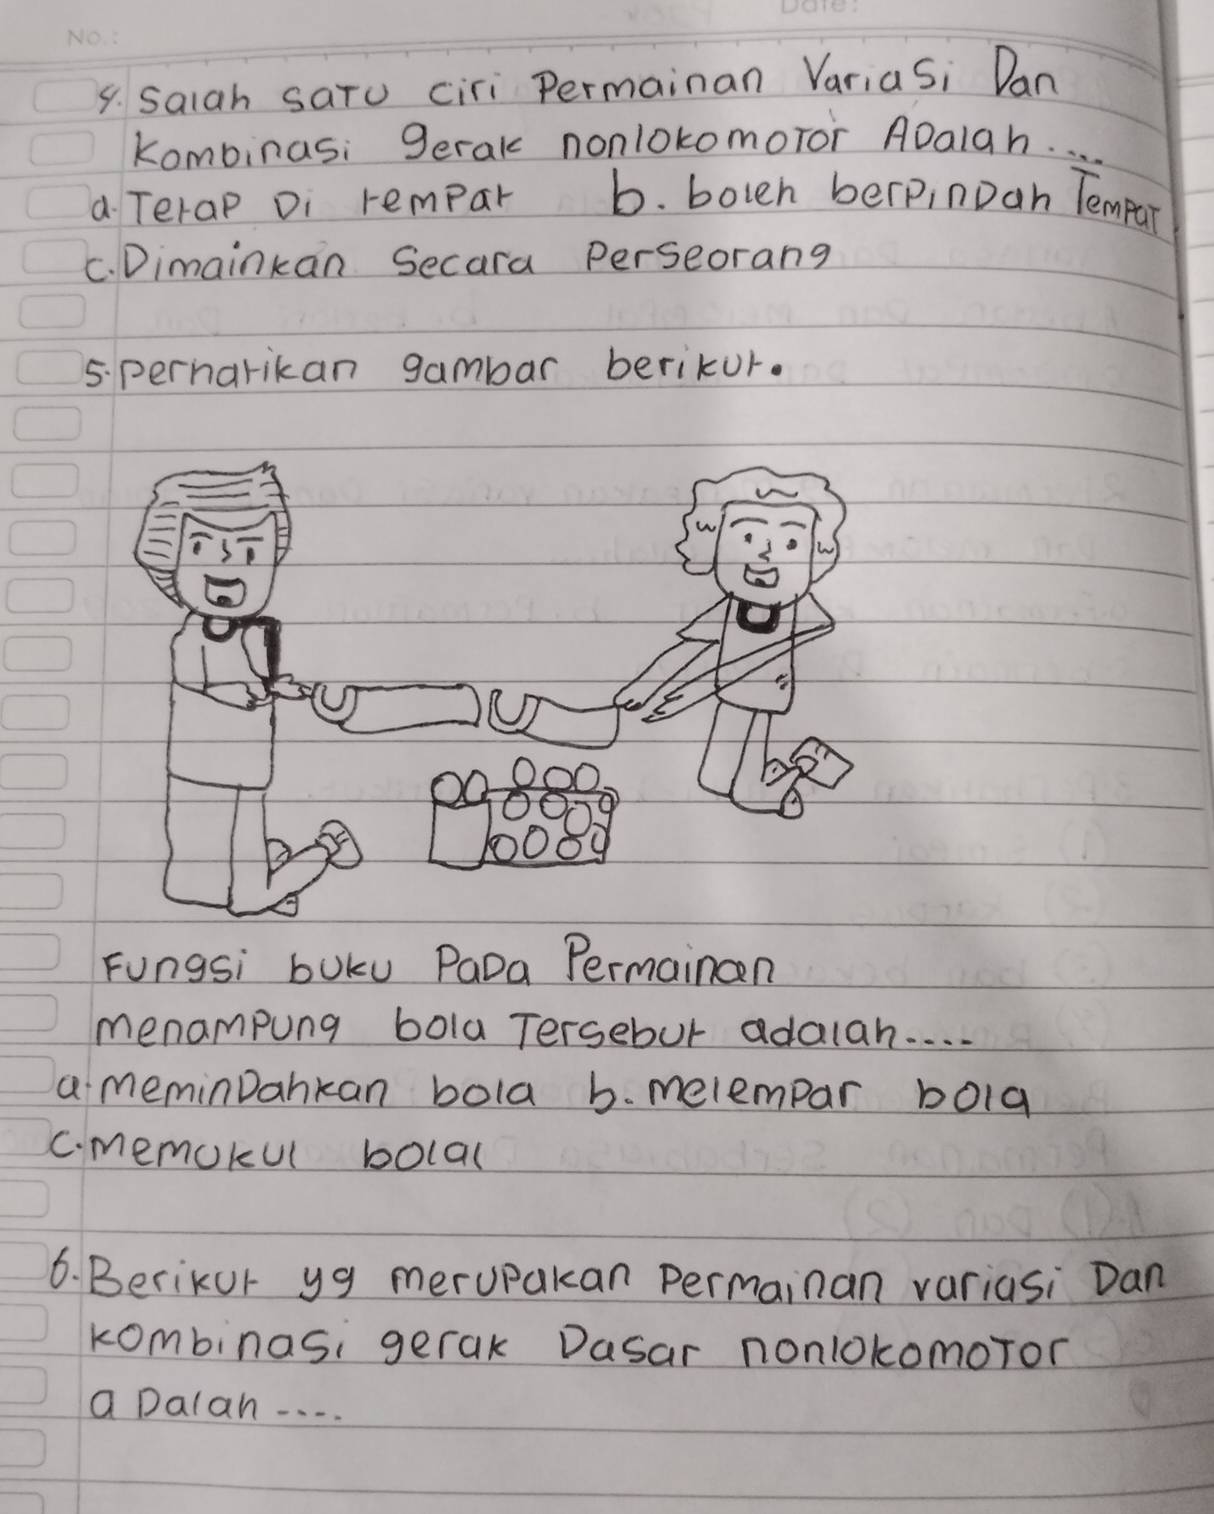 No.:
Date:
4. Salah satu ciri Permainan Variasi Dan
Kombinasi gerak nonlokomotor Adalah....
a. Tetap Di tempat b. boleh berpindah Tempat
c. Dimainkan Secara Perseorang
5. perhatikan gambar berikut.
Fungsi buku Pada Permainan
menampung bola Tersebut adalah....
a. memindahkan bola b. melempar bola
c. memukul bolal
6. Berikut yg merupakan Permainan variasi Dan
kombinasi gerak Dasar nonlokomotor
aDalah....